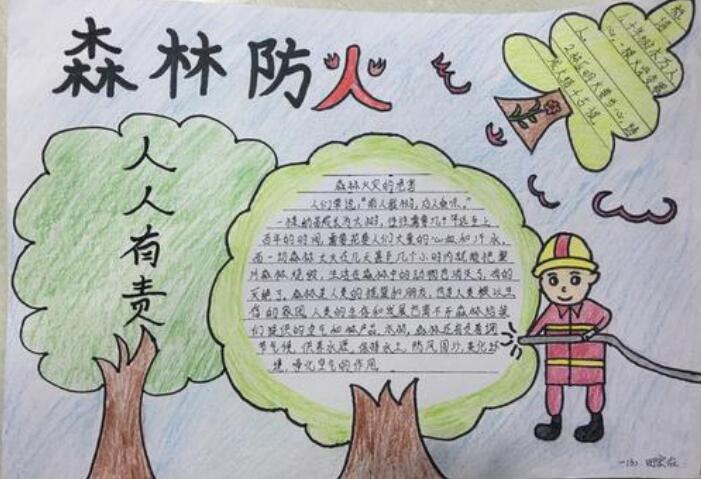 森林防火
标语
1.十年树木万人
人,心一颗火星
2.林区的火要当心,
死灰等于
人人有责
森林火灾的危害
人们常说:“前人栽树,后人乘凉。”
一棵树苗成长为大树,往往需要几十年甚至上
百年的时间,需要花费人们大量的心血和汗水,
而一场森林大火在几天甚至几个小时内就能把整
片森林烧毁,生活在森林中的动物也消失了,有的
灭绝了。森林是人类的摇篮和朋友,也是人类赖以生
存的家园,人类的生存和发展也离不开森林给我
们提供的空气和林产品,水林,森林还担负着调
节气候,供养水源,保持水土,防风固沙,美化环
境,净化空气的作用。